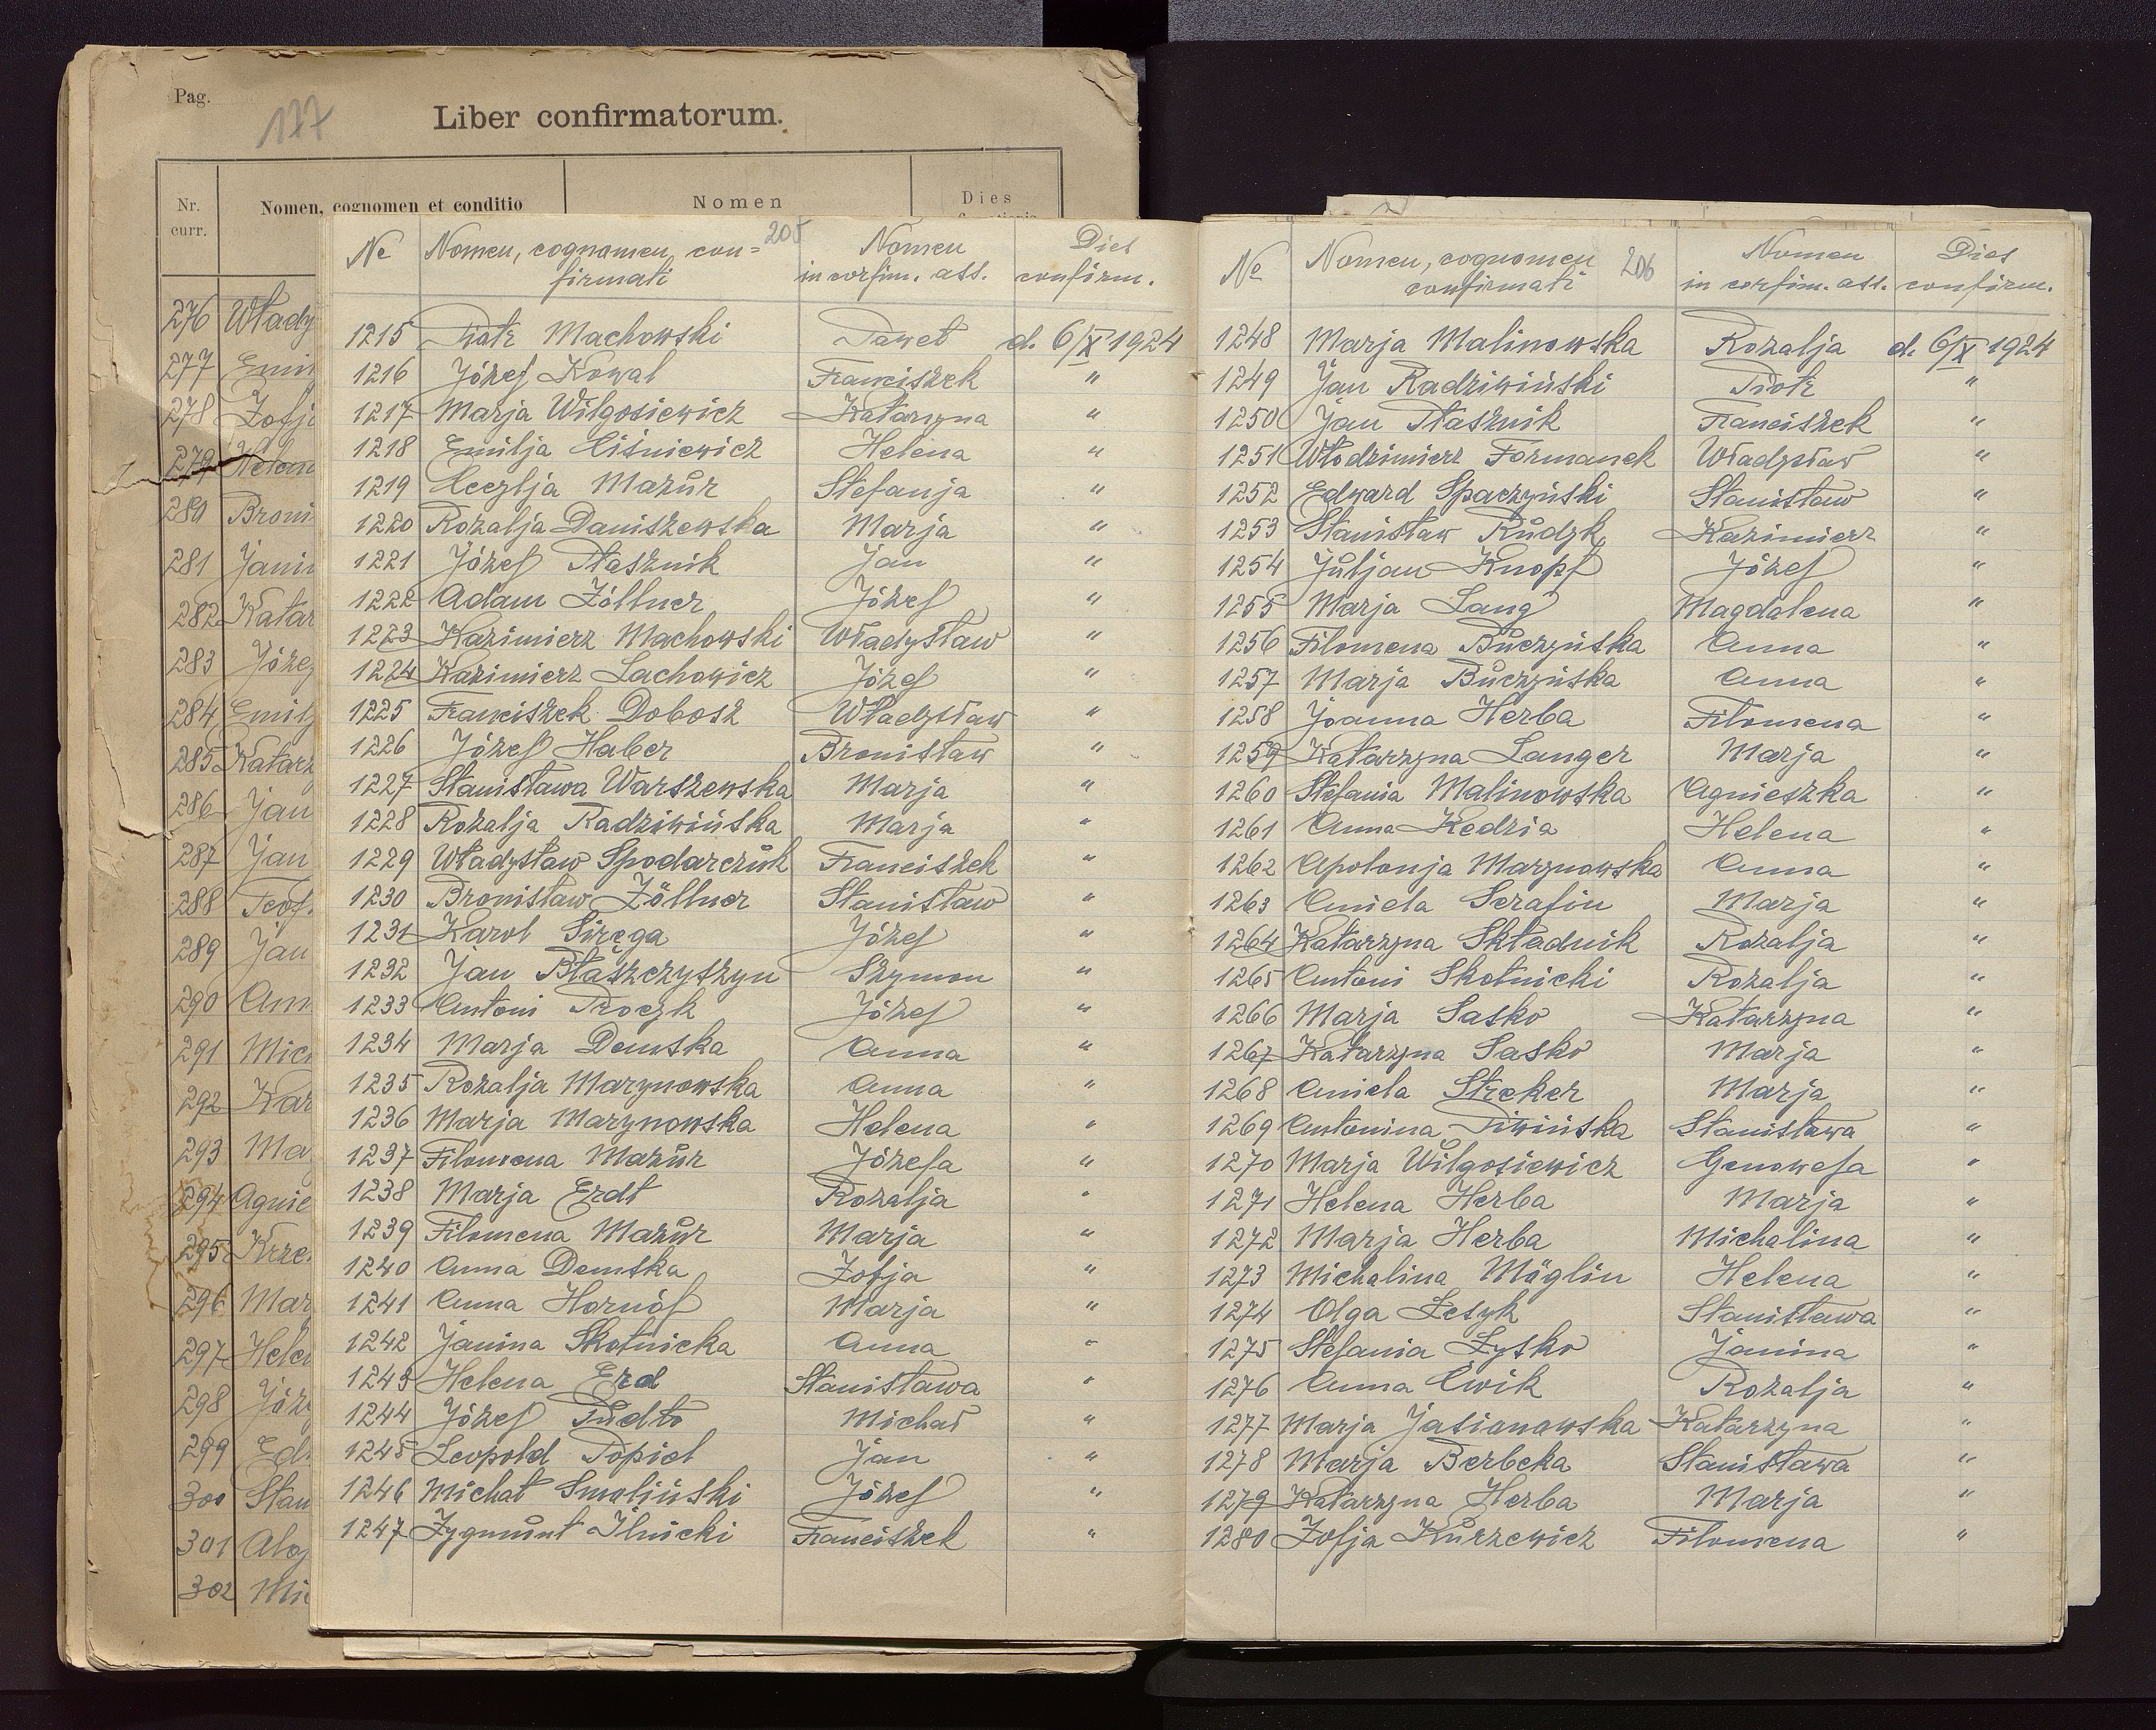 Pag.
177
Liber confirmatorum.
Nr. curr. Nomen, cognomen et conditio Nomen Dies
276 Włady
277 Emil
278 Zofj
279 Helen
280 Broni
281 Janin
282 Katar
283 Józe
284 Emilj
285 Katarz
286 Jan
287 Jan
288 Teof.
289 Jan
290 Ann
291 Mich
292 Kar
293 Ma
294 Agnie
295 Krze
296 Mar
297 Helen
298 Józ
299 Ed
300 Stan
301 Aloj
302 Mic
205
№ Nomen, cognomen, con= Nomen Dies
firmati in confirm. ass. confirm.
1215 Piotr Machowski Paweł d. 6/X 1924
1216 Józef Kowal Franciszek "
1217 Marja Wilgosiewicz Katarzyna "
1218 Emilja Ciśniewicz Helena "
1219 Cecylja Mazur Stefanja "
1220 Rozalja Daniszewska Marja "
1221 Józef Ptasznik Jan "
1222 Adam Zöllner Józef "
1223 Kazimierz Machowski Władysław "
1224 Kazimierz Lachowicz Józef "
1225 Franciszek Dobosz Władysław "
1226 Józef Haber Bronisław "
1227 Stanisława Warszewska Marja "
1228 Rozalja Radziwińska Marja "
1229 Władysław Spodarczuk Franciszek "
1230 Bronisław Zöllner Stanisław "
1231 Karol Siręga Józef "
1232 Jan Błaszczyszyn Szymon "
1233 Antoni Procyk Józef "
1234 Marja Demska Anna "
1235 Rozalja Marynowska Anna "
1236 Marja Marynowska Helena "
1237 Filomena Mazur Józefa "
1238 Marja Erdt Rozalja "
1239 Filomena Mazur Marja "
1240 Anna Demska Zofja "
1241 Anna Hornóf Marja "
1242 Janina Skotnicka Anna "
1243 Helena Erd Stanisława "
1244 Józef Pudło Michał "
1245 Leopold Popiel Jan "
1246 Michał Smoliński Józef "
1247 Zygmunt Ilnicki Franciszek "
206
№ Nomen, cognomen Nomen Dies
confirmati in confirm. ass. confirm.
1248 Marja Malinowska Rozalja d. 6/X 1924
1249 Jan Radziwiński Piotr "
1250 Jan Ptasznik Franciszek "
1251 Włodzimierz Formanek Władysław "
1252 Edward Spaczyński Stanisław "
1253 Stanisław Rudyk Kazimierz "
1254 Juljan Knopf Józef "
1255 Marja Lang Magdalena "
1256 Filomena Buczyńska Anna "
1257 Marja Buczyńska Anna "
1258 Joanna Herba Filomena "
1259 Katarzyna Langer Marja "
1260 Stefania Malinowska Agnieszka "
1261 Anna Kedzia Helena "
1262 Apolonja Marynowska Anna "
1263 Aniela Serafin Marja "
1264 Katarzyna Składnik Rozalja "
1265 Antoni Skotnicki Rozalja "
1266 Marja Sasko Katarzyna "
1267 Katarzyna Sasko Marja "
1268 Aniela Streker Marja "
1269 Antonina Piwińska Stanisława "
1270 Marja Wilgosiewicz Genowefa "
1271 Helena Herba Marja "
1272 Marja Herba Michalina "
1273 Michalina Mäglin Helena "
1274 Olga Lesyk Stanisława "
1275 Stefania Łysko Janina "
1276 Anna Ćwik Rozalja "
1277 Marja Jasianowska Katarzyna "
1278 Marja Berbeka Stanisława "
1279 Katarzyna Herba Marja "
1280 Zofja Kurzewicz Filomena "